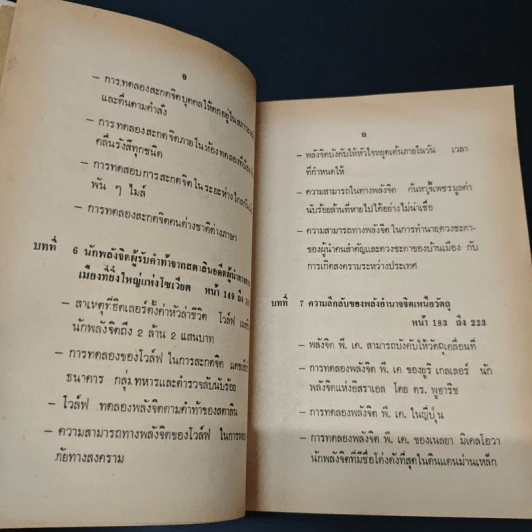 ๑
– การทดลองสะกดจิตบุคคลให้ตกอยู่ใน
และตื่นตามคำสั่ง
– การทดลองสะกดจิตภายในห้องทดลอง
คลื่นรังสีทุกชนิด
– การทดสอบการสะกดจิตในระยะห่างไกล
พัน ๆ ไมล์
– การทดลองสะกดจิตคนต่างชาติต่างภาษา
บทที่ 6 นักพลังจิตผู้รับคำท้าจากสตาลินอดีตผู้นำ
เมืองที่ยิ่งใหญ่แห่งโซเวียต หน้า 149 ถึง
– สาเหตุที่ฮิตเลอร์ตั้งค่าหัวล่าชีวิต โวล์ฟ
นักพลังจิตถึง 2 ล้าน 2 แสนบาท
– การทดลองของโวล์ฟ ในการสะกดจิต
ธนาคาร กลุ่มทหารและตำรวจลับนับร้อย
– โวล์ฟ ทดลองพลังจิตตามคำท้าของสตาลิน
– ความสามารถทางพลังจิตของโวล์ฟ ในการ
ภัยทางสงคราม
– พลังจิตบังคับให้หัวใจหยุดเต้นภายในวัน เวลา
ที่กำหนดให้
– ความสามารถในทางพลังจิต ค้นหาเพชรมูลค่า
นับร้อยล้านที่หายไปได้อย่างไม่น่าเชื่อ
– ความสามารถทางพลังจิต ในการทำนายดวงชะตา
ของผู้นำคนสำคัญและดวงชะตาของบ้านเมือง กับ
การเกิดสงครามระหว่างประเทศ
บทที่ 7 ความลึกลับของพลังอำนาจจิตเหนือวัตถุ
หน้า 183 ถึง 223
– พลังจิต พี. เค. สามารถบังคับให้วัตถุเคลื่อนที่
– การทดลองพลังจิต พี. เค ของยูริ เกลเลอร์ นัก
พลังจิตแห่งอิสราเอล โดย ดร. พูอาริช
– การทดลองพลังจิต พี. เค. ในญี่ปุ่น
– การทดลองพลังจิต พี. เค. ของเนลยา มิเคลโอวา
นักพลังจิตที่มีชื่อโด่งดังที่สุดในดินแดนม่านเหล็ก